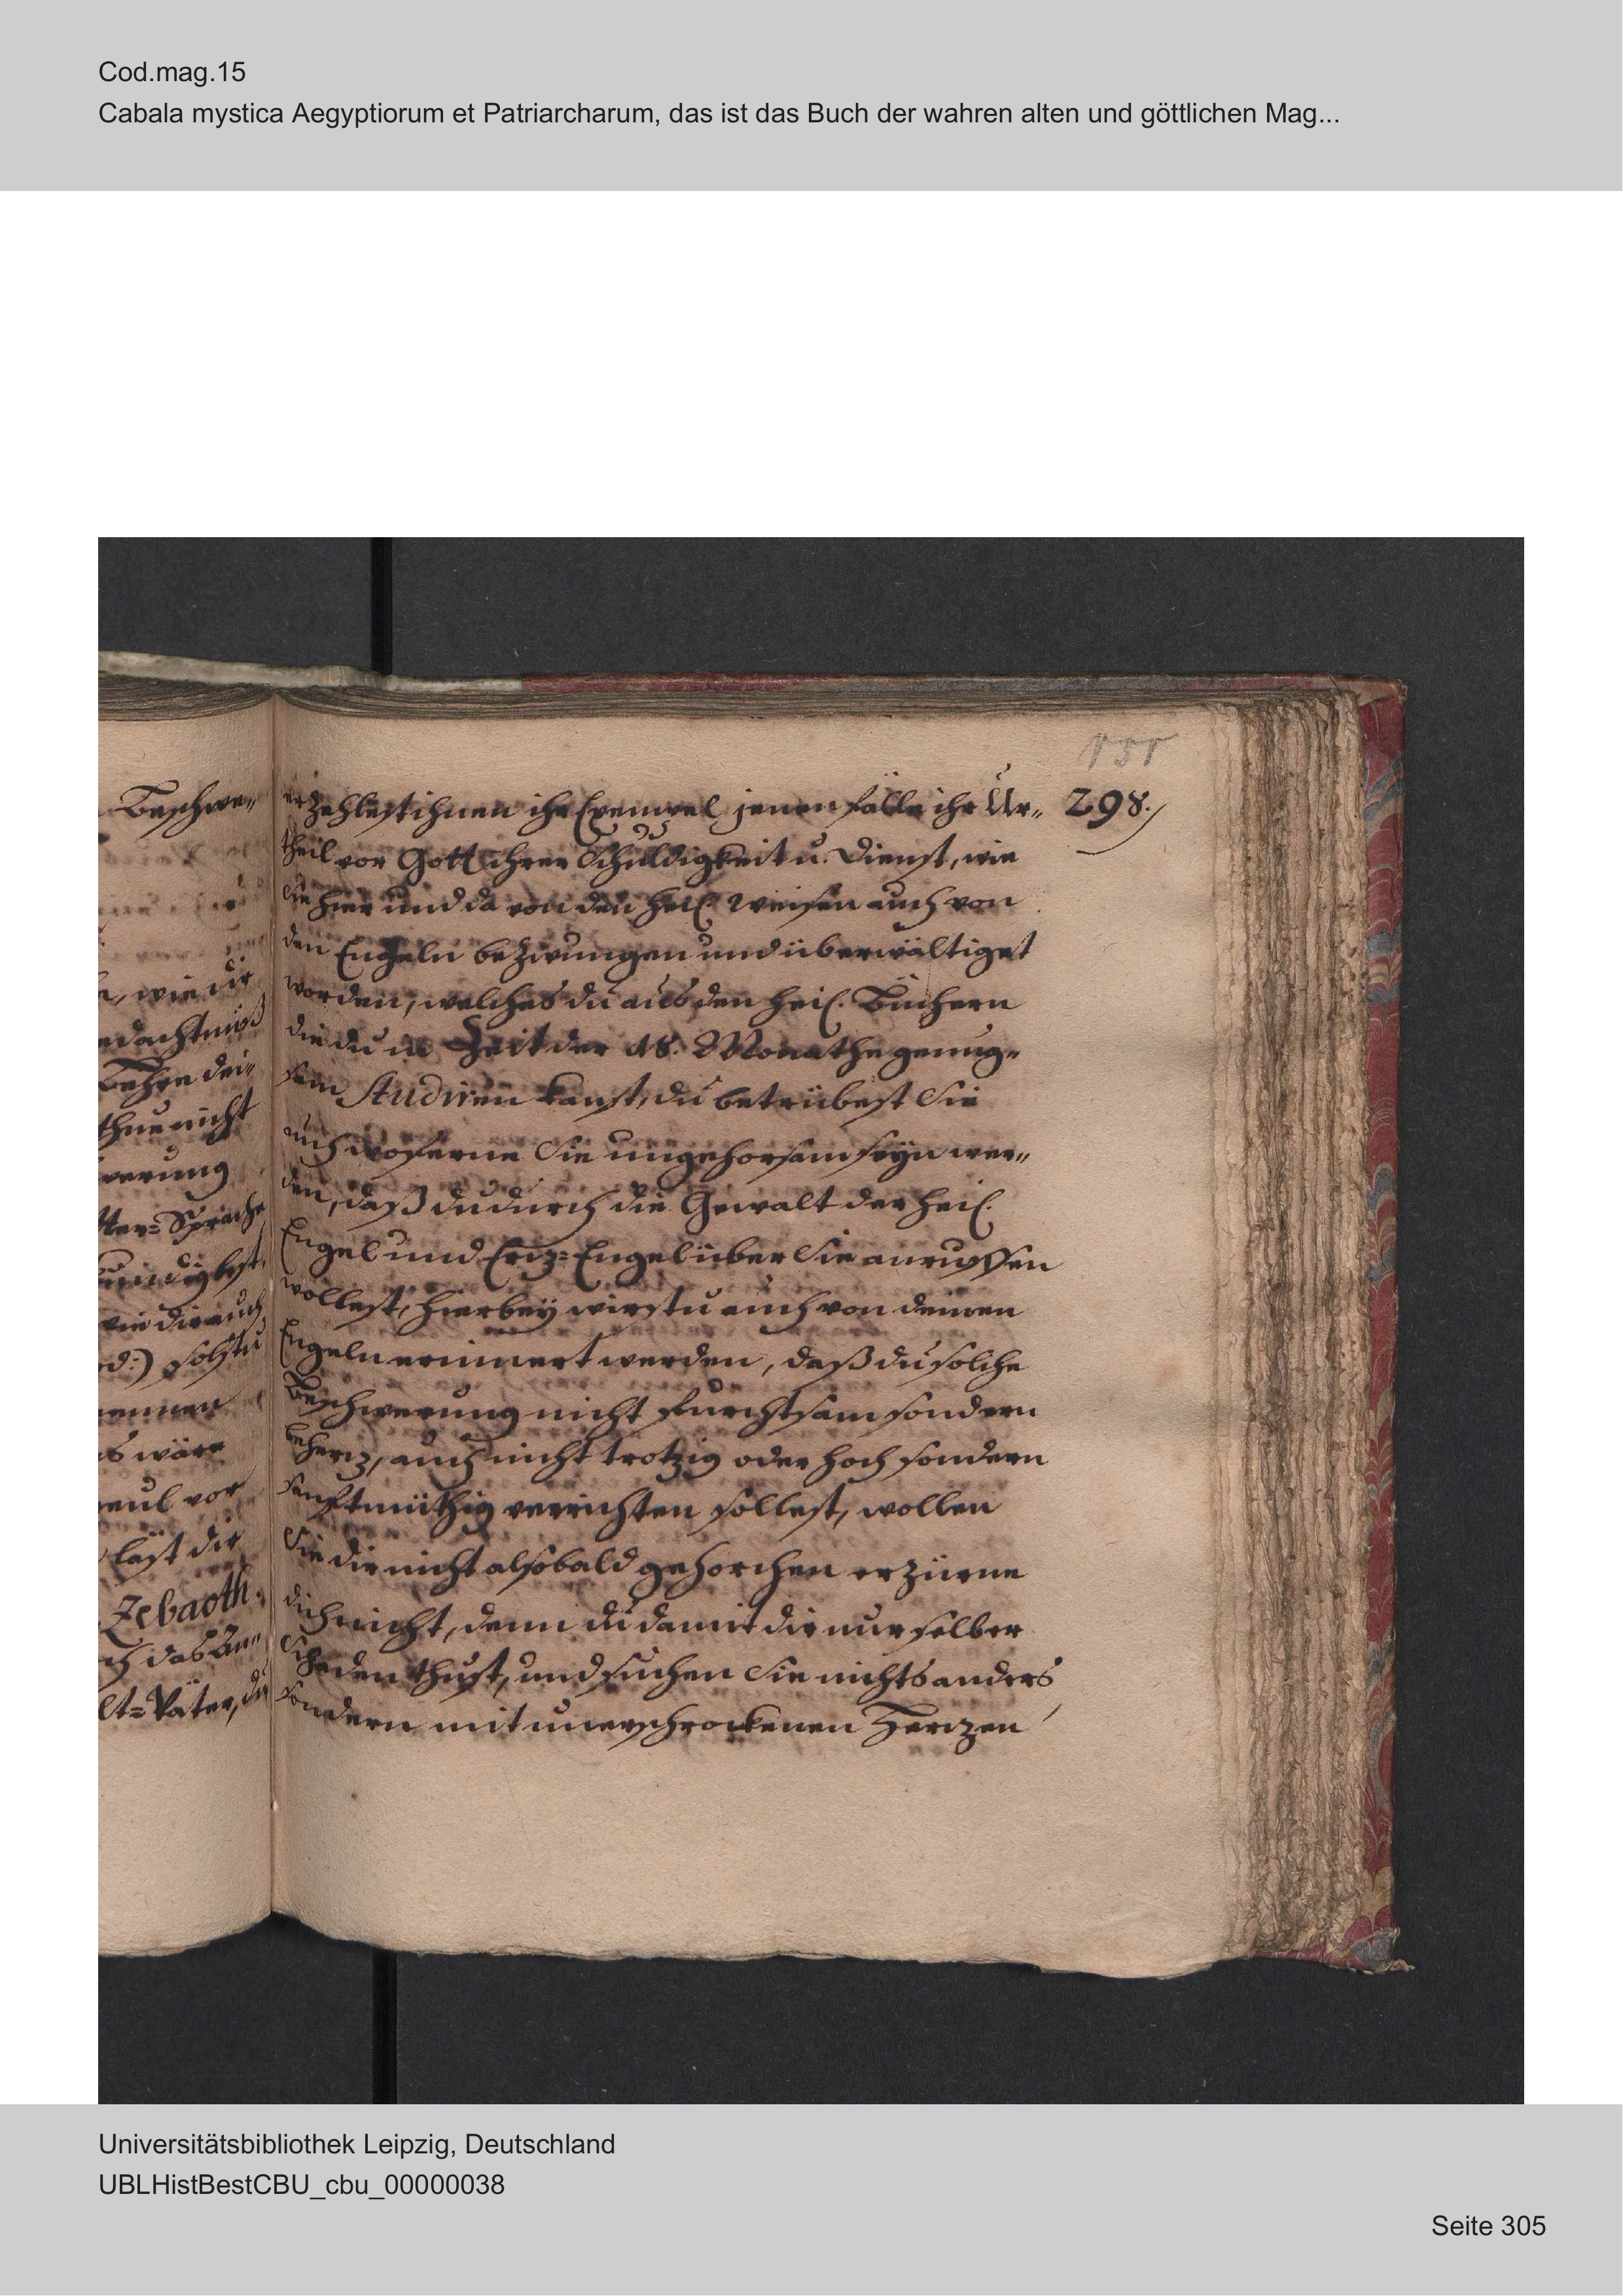 Cod.mag.15
Cabala mystica Aegyptiorum et Patriarcharum, das ist das Buch der wahren alten und göttlichen Mag...
155
298.
Beschwe„
wie dir
Lehre dei„
thue nicht
werung
tter=Sprache
wie dir auch
rd:) solstu
nennen
es wäre
vor
last dir
Zebaoth.
lt=Väter, du
erzehlest ihnen ihr Exempel jenen fälle ihr Ur„
theil vor Gott ihrer Schuldigkeit u. Dienst, wie
Sie hier und da von den heil. Weisen auch von
den Engeln bezwungen und überwältiget
worden, welches du aus den heil. Büchern
die du in Zeit der 18. Monathe genug„
sam Studiren kanst, du betrübest Sie
auch woferne Sie ungehorsam seyn wer„
den, daß du durch die Gewalt der heil.
Engel und Ertz=Engel über Sie anruffen
wollest, hierbey wirstu auch von deinen
Engeln erinnert werden, daß du solche
Beschwerung nicht furchtsam sondern
behertz, auch nicht trotzig oder hoch sondern
sanftmüthig verrichten sollest, wollen
Sie dir nicht alsobald gehorchen erzürne
dich nicht, denn du damit dir nur selber
Schaden thust, und suchen Sie nichts anders
sondern mit unerschrockenen Hertzen
Universitätsbibliothek Leipzig, Deutschland
UBLHistBestCBU_cbu_00000038
Seite 305